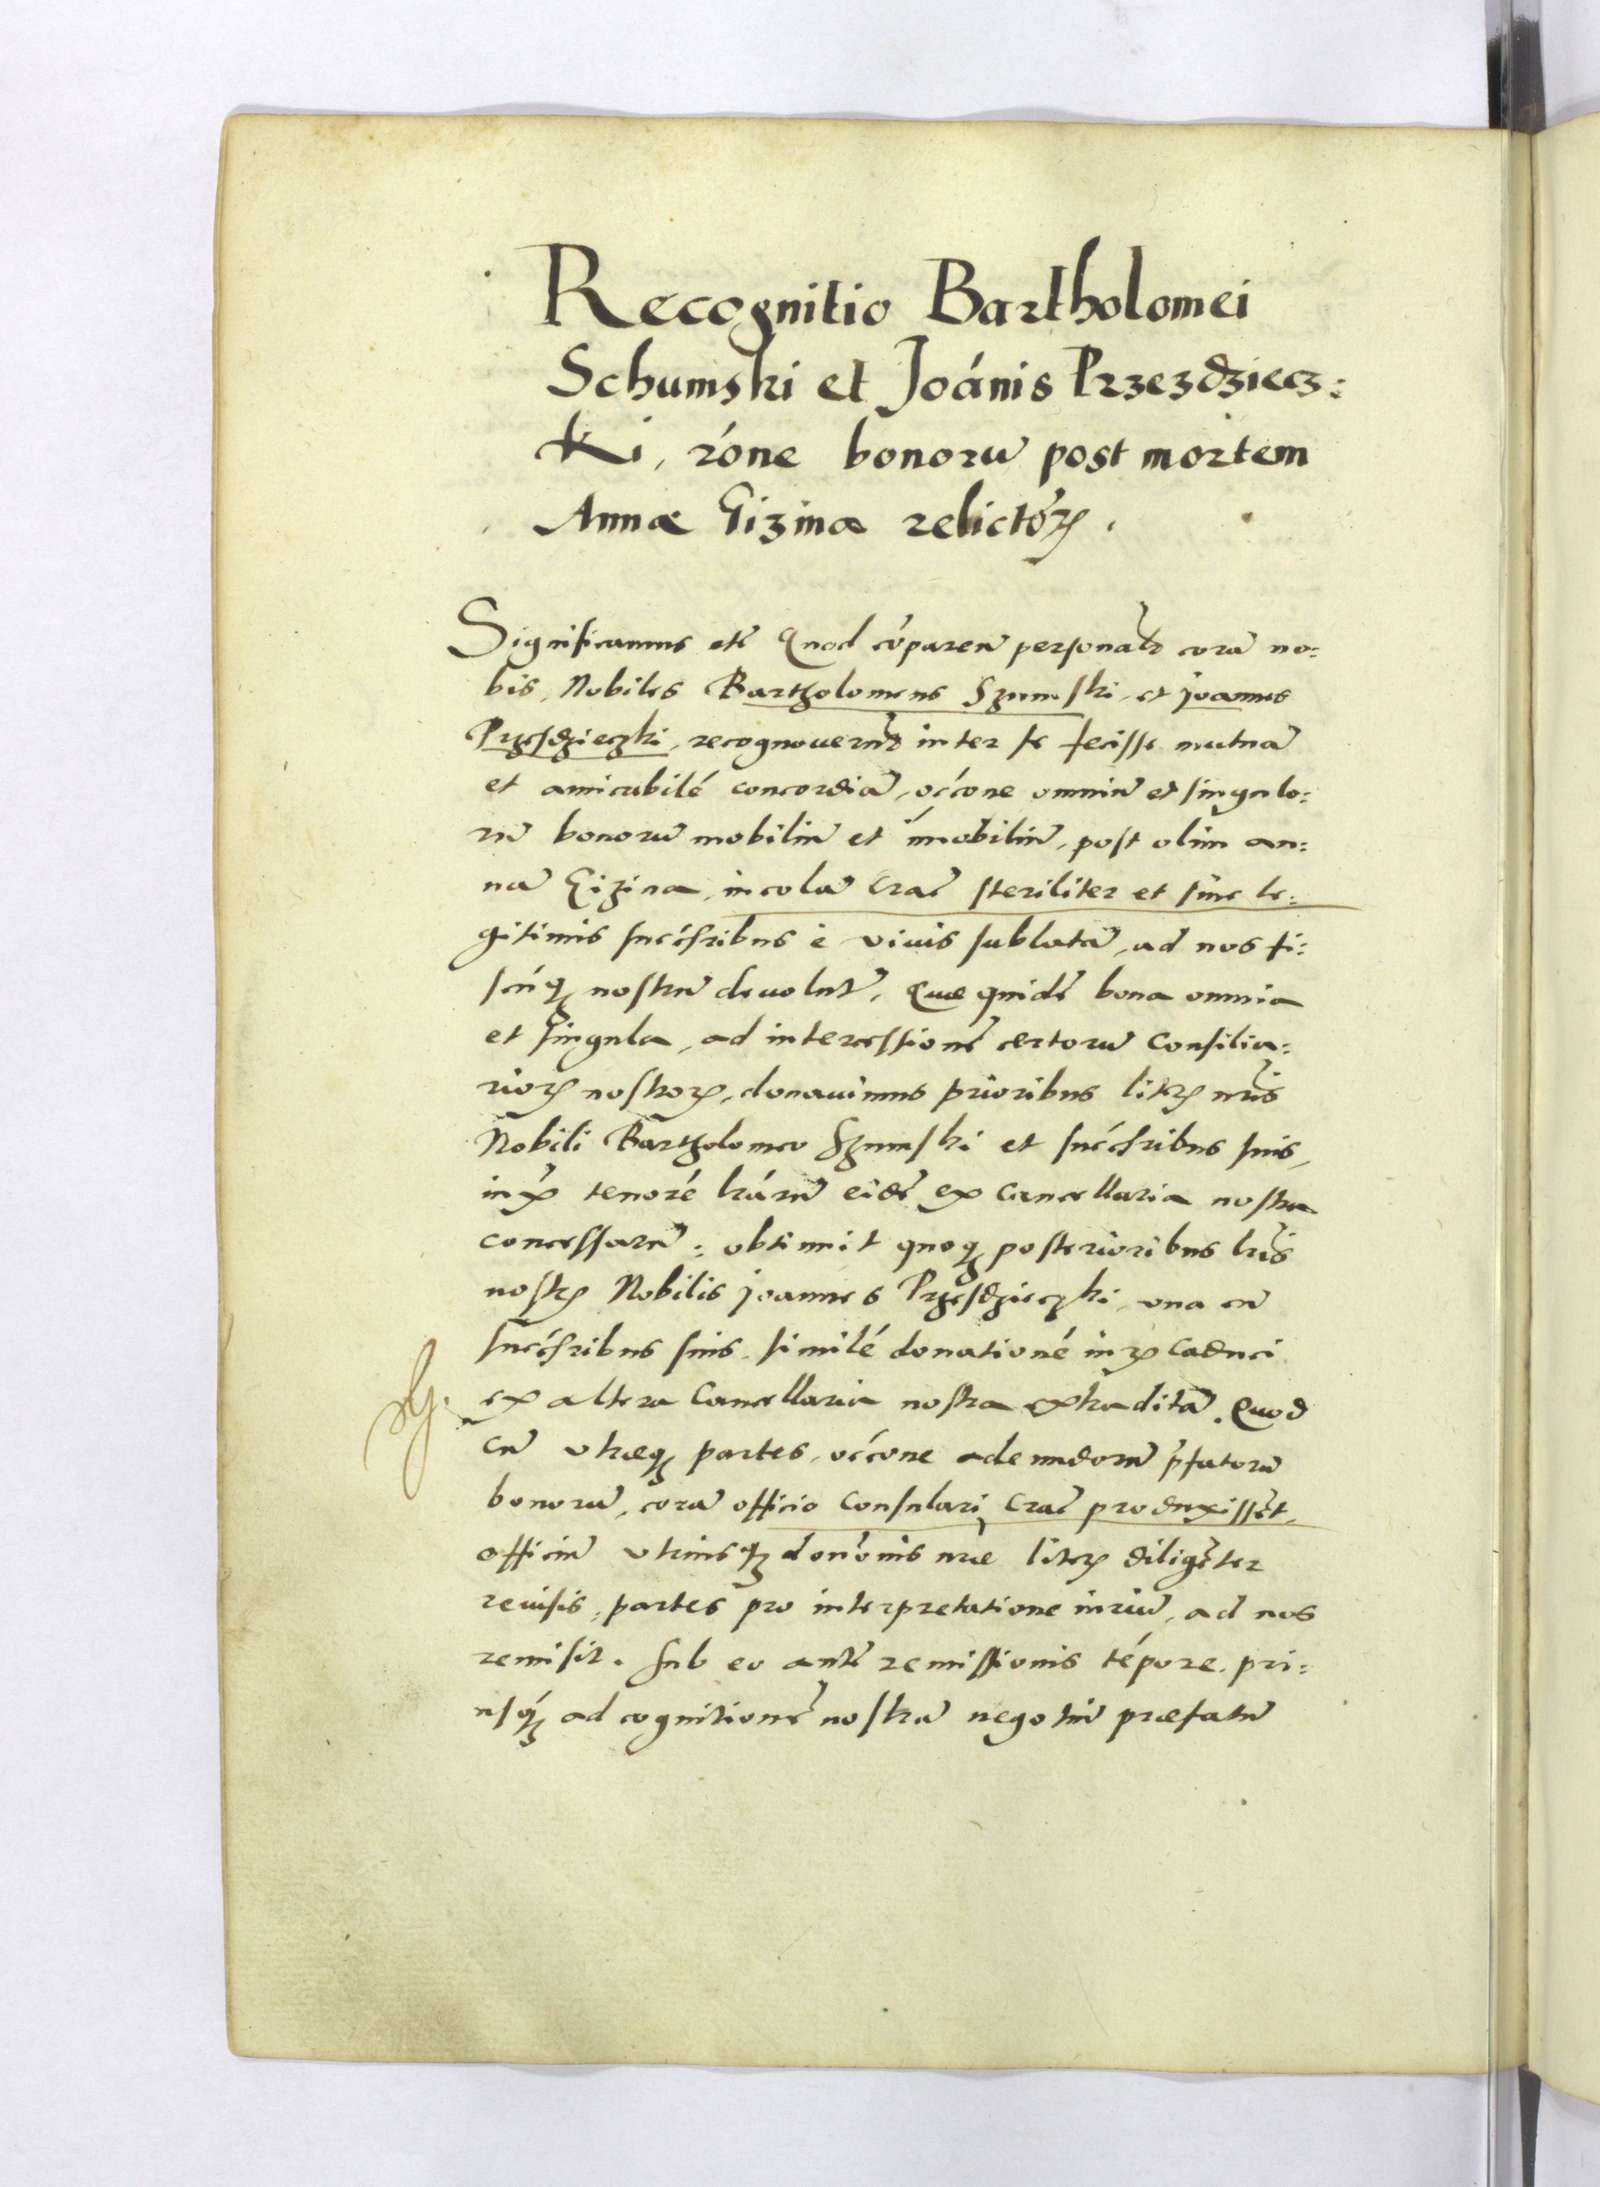 Recognitio Bartholomei
Schumski et Joánis Przezdziecz:
ki, róne bonorū post mortem
Annæ Gizina relictoꝝ.
Significamus etc̃ Quod cōparen̄ personal̃r corā no:
bis, Nobiles Bartholomeus Szumski, et joannes
Przesdzieczki, recognouerūt inter se fecisse mutuā
et amicabilē concordiā, occōne omniū et singulo:
rū bonorū mobiliū et īmobiliū, post olim an:
nā Gizina, incolā Crac̃ steriliter et sine le:
gitimis succ̃sribus è viuis sublatā, ad nos fi:
scūqꝫ nostrū deuolut̃, Quæ quidē bona omnia
et singula, ad intercessionē certorū Consilia:
rioꝝ nostroꝝ, donauimus prioribus literꝭ nr̃is
Nobili Bartholomeo Szumski et succ̃sribus suis,
iuxᵃ tenorē lr̃arū eidē ex Cancellaria nostra
concessarū: obtinuit quoqꝫ posterioribus lr̃is
nostrꝭ Nobilis joannes Przesdzieczki, una cū
succ̃sribus suis, similē donationē iure Caduci
ex altera Cancellaria nostra extraditā. Quod
Cū utræqꝫ partes, occōne adeundorū p̄fatorū
bonorū, corā officio Consulari Crac̃ produxissēt,
officiū utriusqꝫ donōnis nr̃æ literꝭ diligēter
reuisis, partes pro interpretatione iuriū, ad nos
remisit. Sub eo autē remissionis tēpore, pri:
usqꝫ̄ ad cognitionē nostrā negotiū præfatū